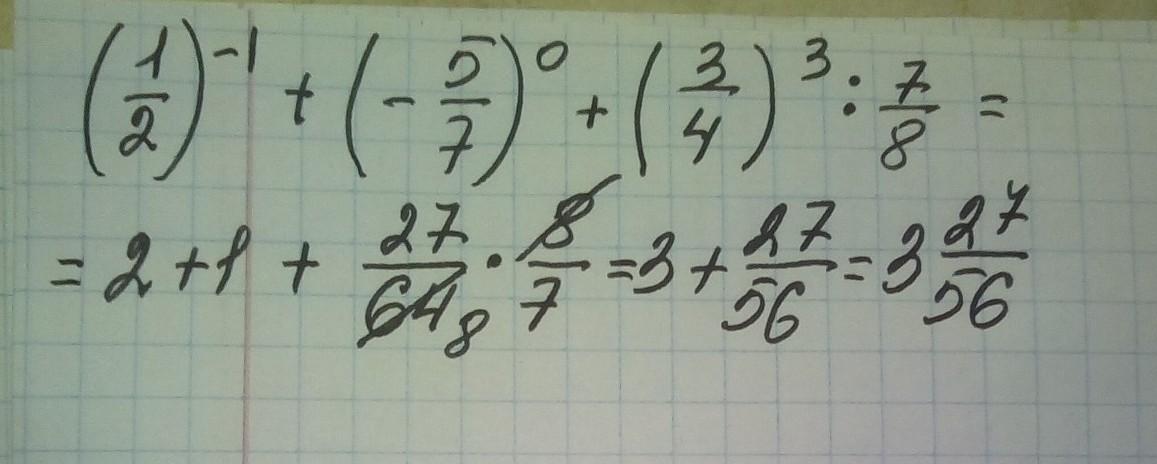 (1/2)^-1 + (-5/7)^0 + (3/4)^3 : 7/8 =
= 2 + 1 + 27/64 8 · 8/7 = 3 + 27/56 = 3 27/56